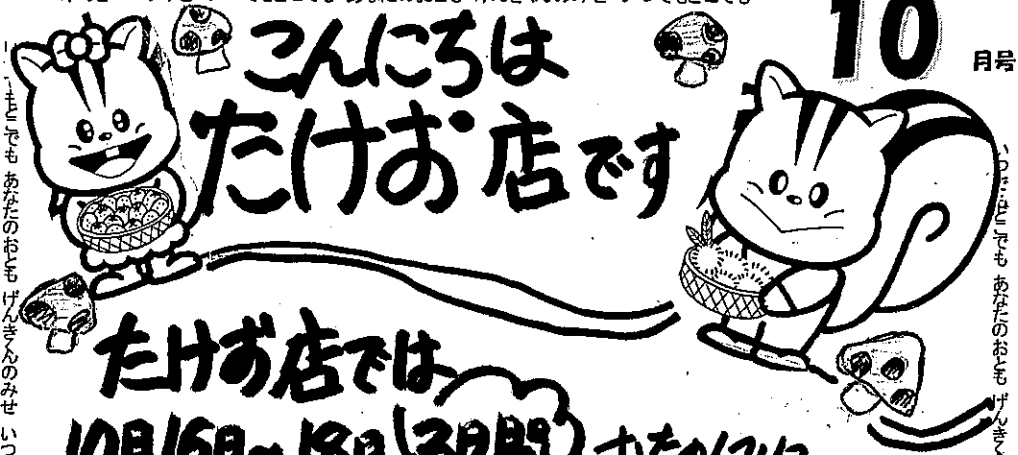 10月号
こんにちは
たけお店です
たけお店では
10月16日~18日(3日間)
いつでもどこでも あなたのおとも げんきくんのみせ いつ
いつでもどこでも あなたのおとも げんきく